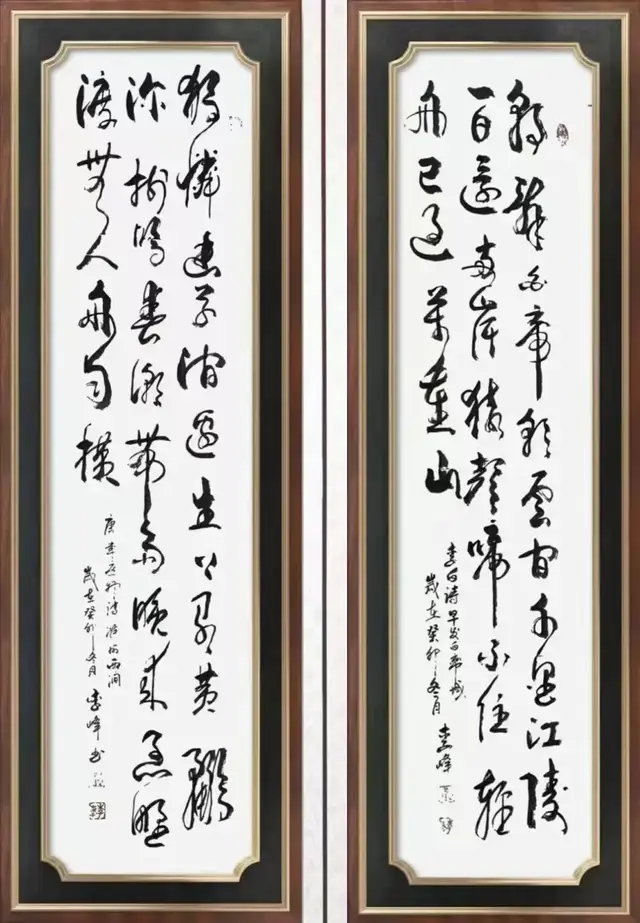 朝辞白帝彩雲间千里江陵
一日還两岸猿聲啼不住轻
舟已過萬重山
李白诗早发白帝城
歲在癸卯冬月 李峰
独憐幽草涧边生上有黄鹂
深树鸣春潮带雨晚来急野
渡無人舟自横
唐韦应物诗滁州西涧
歲在癸卯冬月 李峰书